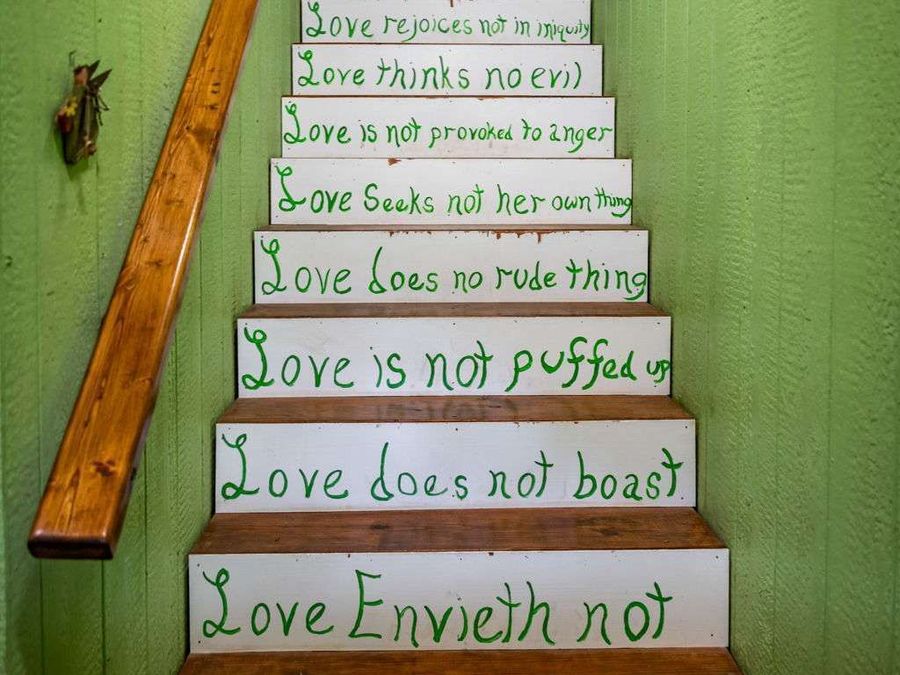 Love rejoices not in iniquity
Love thinks no evil
Love is not provoked to anger
Love Seeks not her own thing
Love does no rude thing
Love is not puffed up
Love does not boast
Love Envieth not